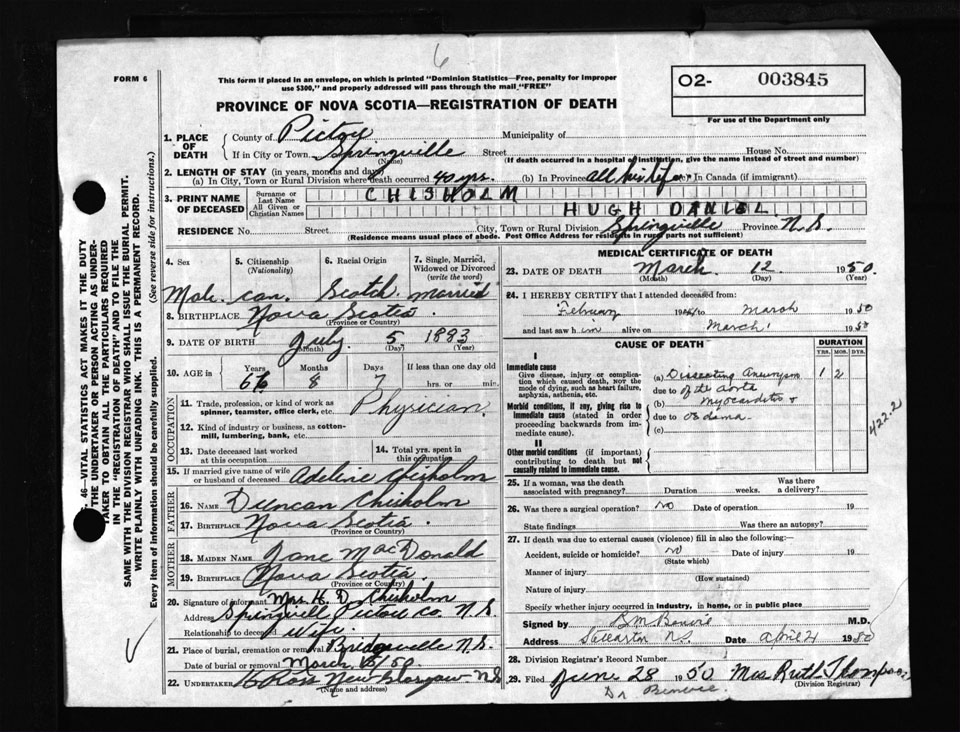 6
FORM 6
This form if placed in an envelope, on which is printed "Dominion Statistics—Free, penalty for improper
use $300," and properly addressed will pass through the mail "FREE"
O2- 003845
For use of the Department only
PROVINCE OF NOVA SCOTIA—REGISTRATION OF DEATH
1. PLACE OF DEATH
County of Pictou Municipality of
If in City or Town Springville Street House No.
(Name) (If death occurred in a hospital or institution, give the name instead of street and number)
2. LENGTH OF STAY (in years, months and days)
(a) In City, Town or Rural Division where death occurred 40 yrs. (b) In Province all his life (c) In Canada (if immigrant)
3. PRINT NAME OF DECEASED
Surname or Last Name CHISHOLM
All Given or Christian Names HUGH DANIEL
RESIDENCE No. Street City, Town or Rural Division Springville Province N.S.
(Residence means usual place of abode. Post Office Address for residents in rural parts not sufficient)
4. Sex 5. Citizenship (Nationality) 6. Racial Origin 7. Single, Married, Widowed or Divorced (write the word)
Male. can. Scotch married
8. BIRTHPLACE Nova Scotia
(Province or Country)
9. DATE OF BIRTH July 5 1883
(Month) (Day) (Year)
10. AGE in Years Months Days If less than one day old
66 8 7 hrs. or min.
OCCUPATION
11. Trade, profession, or kind of work as spinner, teamster, office clerk, etc. Physician
12. Kind of industry or business, as cotton-mill, lumbering, bank, etc.
13. Date deceased last worked at this occupation
14. Total yrs. spent in this occupation
15. If married give name of wife or husband of deceased Adeline Chisholm
FATHER
16. Name Duncan Chisholm
17. Birthplace Nova Scotia
MOTHER
18. Maiden Name Jane MacDonald
19. Birthplace Nova Scotia
(Province or Country)
20. Signature of informant Mrs. H. D. Chisholm
Address Springville Pictou Co. N.S.
Relationship to deceased Wife
21. Place of burial, cremation or removal Bridgeville N.S.
Date of burial or removal March 15/50
22. Undertaker Ross New Glasgow N.S
(Name and address)
MEDICAL CERTIFICATE OF DEATH
23. DATE OF DEATH March 12 1950.
(Month) (Day)
24. I HEREBY CERTIFY that I attended deceased from:
February to March 1950
and last saw him alive on March 1 1950
CAUSE OF DEATH
DURATION
YRS. MOS. DYS.
I
Immediate cause
Give disease, injury or complication which caused death, NOT the mode of dying, such as heart failure, asphyxia, asthenia, etc.
(a) Dissecting Aneurysm 1 2
due to of the aorta
Morbid conditions, if any, giving rise to immediate cause (stated in order proceeding backwards from immediate cause).
(b) Myocarditis &
due to Oedema
(c)
II
Other morbid conditions (if important) contributing to death but not causally related to immediate cause.
422.2
25. If a woman, was the death associated with pregnancy? Duration weeks. Was there a delivery?
26. Was there a surgical operation? NO Date of operation 19
State findings Was there an autopsy?
27. If death was due to external causes (violence) fill in also the following:
Accident, suicide or homicide? NO Date of injury 19
(State which)
Manner of injury
(How sustained)
Nature of injury
Specify whether injury occurred in industry, in home, or in public place
Signed by M.D.
Address Stellarton N.S. Date April 21 1950
28. Division Registrar's Record Number
29. Filed June 28 1950 Mrs Ruth Thompson
(Division Registrar)
46.—VITAL STATISTICS ACT MAKES IT THE DUTY
THE UNDERTAKER OR PERSON ACTING AS UNDER-
TAKER TO OBTAIN ALL THE PARTICULARS REQUIRED
IN THE "REGISTRATION OF DEATH" AND TO FILE THE
SAME WITH THE DIVISION REGISTRAR WHO SHALL ISSUE THE BURIAL PERMIT.
WRITE PLAINLY WITH UNFADING INK. THIS IS A PERMANENT RECORD.
Every item of information should be carefully supplied. (See reverse side for instructions.)